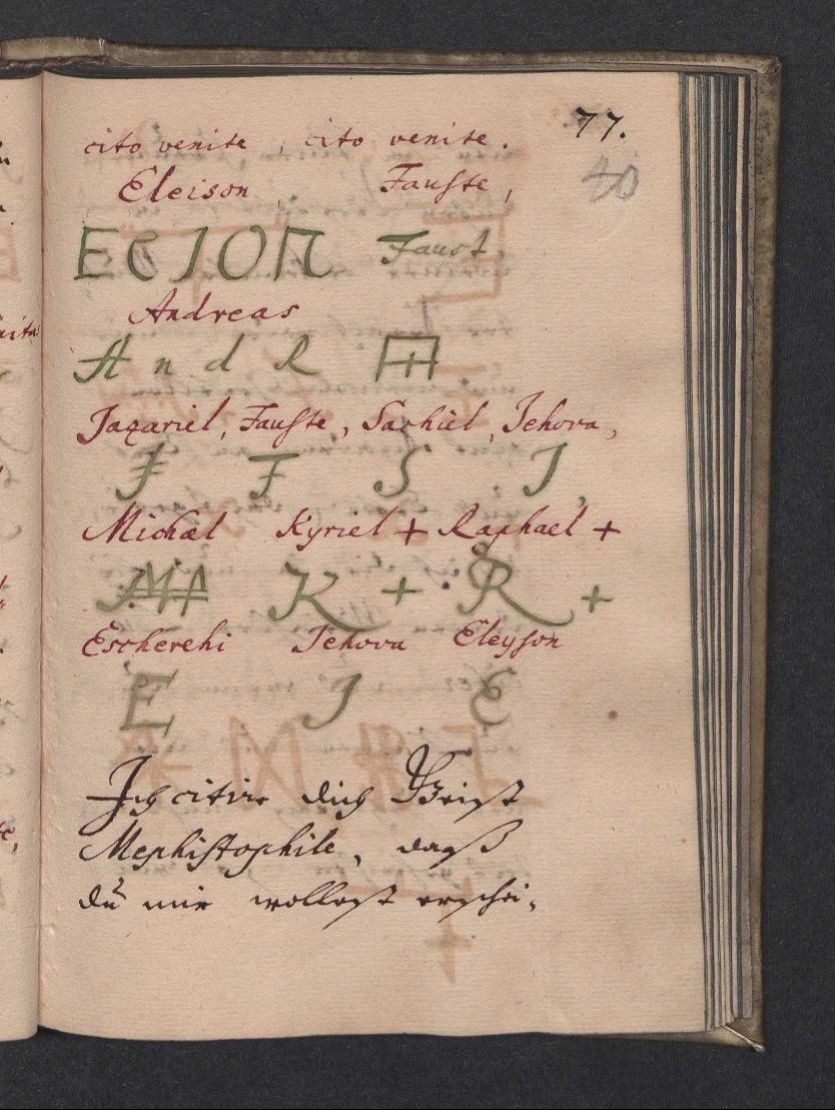 77.
cito venite, cito venite.
40
Eleison, Fauste,
ECJOΠ Faust,
Andreas
A n d R
Jaqariel, Fauste, Sachiel, Jehova,
F S J,
Michael Kyriel + Raphael +
K + R +
Escherehi Jehova Eleyson
E J E
Ich citire dich Geist
Mephistophile, daß
du mir wollest erschei-